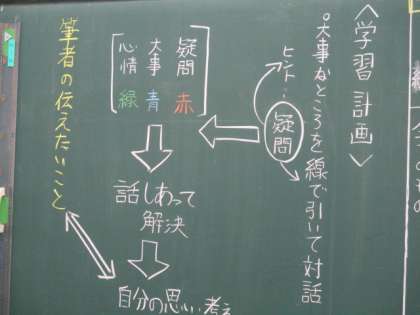 <学習計画>
○大事なところを線で引いて対話
ヒント
疑問
疑問 赤
大事 青
心情 緑
話しあって
解決
自分の思い考え
筆者の伝えたいこと